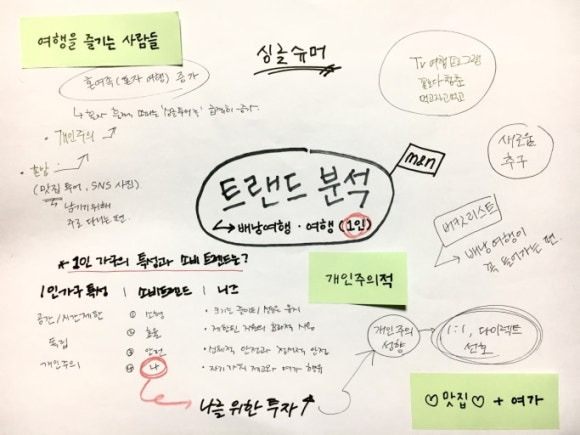 여행을 즐기는 사람들
싱글슈머
혼여족 (혼자 여행) 증가
TV 여행 프로그램
꽃보다 청춘
먹고자고먹고
개인주의
혼밥
(맛집 투어, SNS 사진)
남기기 위해
주로 다니는 편.
men
새로움
추구
트랜드 분석
배낭여행 · 여행 (1인)
버킷리스트
배낭여행이
꼭 들어가는 편.
* 1인 가구의 특성과 소비 트렌드는?
1인가구 특성 | 소비트렌드 | 니즈
공간/시간제한 ① 소형 · 크기는 줄이되 성능은 유지
독립 ② 효율 · 제한된 자원의 효과적 사용
③ 안전 · 신체적 안전과 정서적 안정
개인주의 ④ 나 · 자기가치 제고와 여가 향유
나를 위한 투자 ↑
개인주의적
개인주의
성향
1:1, 다이렉트
선호
♡맛집♡ + 여가